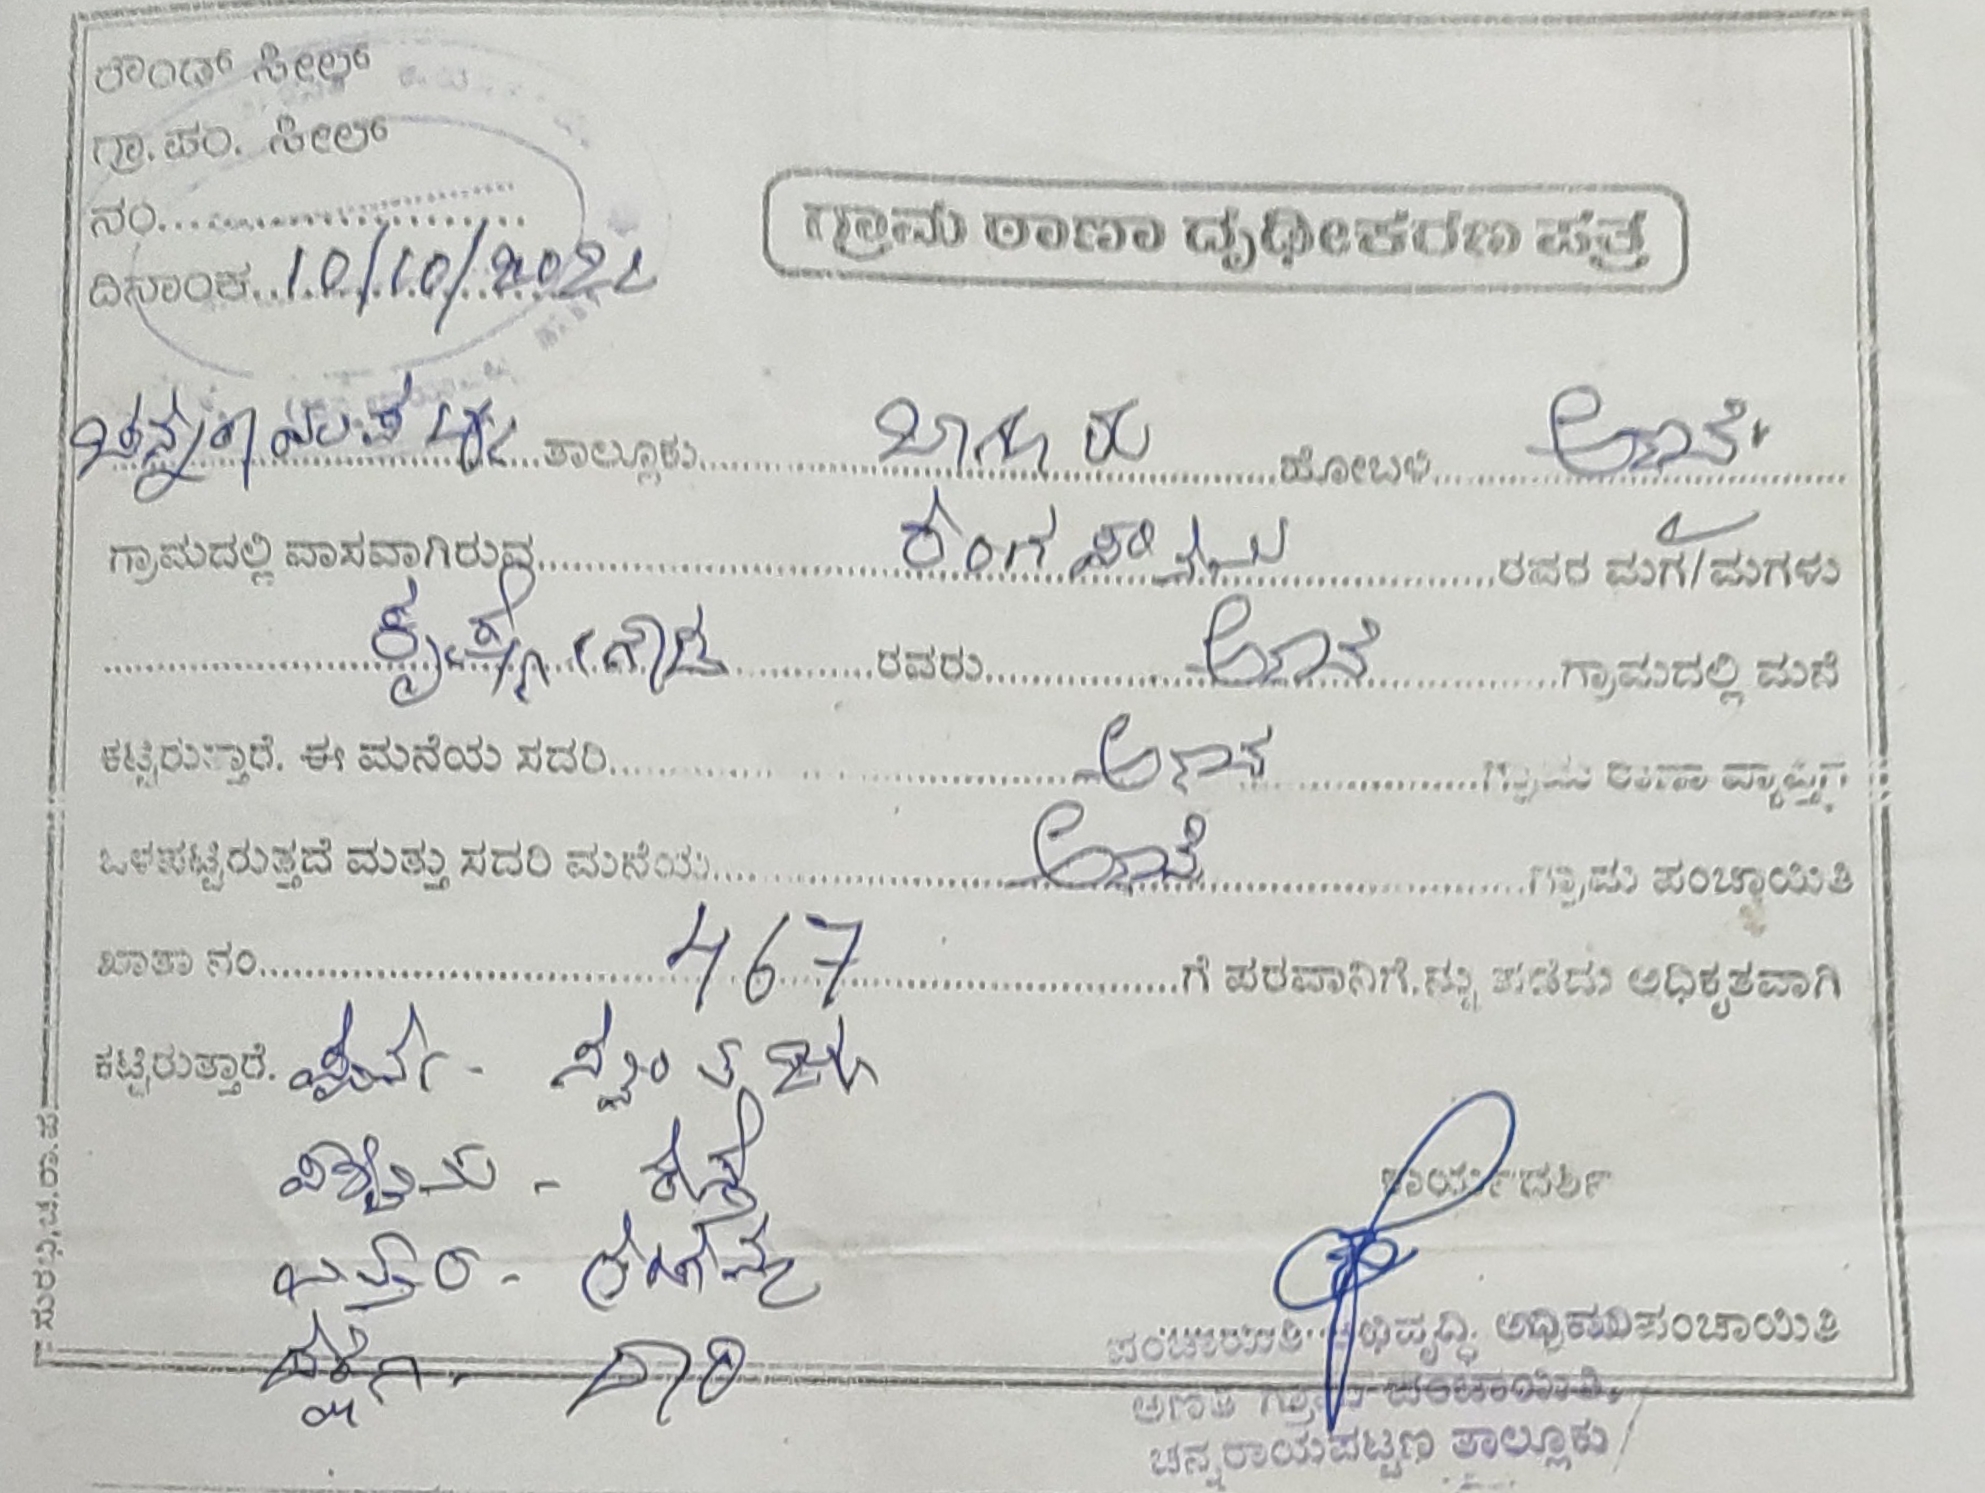 ರೌಂಡ್ ಸೀಲ್
ಗ್ರಾ.ಪಂ. ಸೀಲ್
ನಂ....................
ದಿನಾಂಕ..10/10/2021
ಗ್ರಾಮ ಠಾಣಾ ದೃಢೀಕರಣ ಪತ್ರ
ಚನ್ನರಾಯಪಟ್ಟಣ ತಾಲ್ಲೂಕು ಬಾಗೂರು ಹೋಬಳಿ ಅಣತಿ
ಗ್ರಾಮದಲ್ಲಿ ವಾಸವಾಗಿರುವ ರಂಗಸ್ವಾಮಿ ರವರ ಮಗ/ಮಗಳು
ಕೃಷ್ಣೇಗೌಡ ರವರು ಅಣತಿ ಗ್ರಾಮದಲ್ಲಿ ಮನೆ
ಕಟ್ಟಿರುತ್ತಾರೆ. ಈ ಮನೆಯ ಸದರಿ ಅಣತಿ ಗ್ರಾಮ ಠಾಣಾ ವ್ಯಾಪ್ತಿಗೆ
ಒಳಪಟ್ಟಿರುತ್ತದೆ ಮತ್ತು ಸದರಿ ಮನೆಯ ಅಣತಿ ಗ್ರಾಮ ಪಂಚಾಯಿತಿ
ಖಾತಾ ನಂ 467 ಗೆ ಪರವಾನಿಗೆಯನ್ನು ಪಡೆದು ಅಧಿಕೃತವಾಗಿ
ಕಟ್ಟಿರುತ್ತಾರೆ. ಪೂರ್ವ -
ಪಶ್ಚಿಮ - ರಸ್ತೆ
ಉತ್ತರ -
ದಕ್ಷಿಣ - ದಾರಿ
ಕಾರ್ಯದರ್ಶಿ
ಪಂಚಾಯಿತಿ ಅಭಿವೃದ್ಧಿ ಅಧಿಕಾರಿ ಪಂಚಾಯಿತಿ
ಅಣತಿ ಗ್ರಾಮ ಪಂಚಾಯಿತಿ,
ಚನ್ನರಾಯಪಟ್ಟಣ ತಾಲ್ಲೂಕು
ಸುರಭಿ, ಚ.ರಾ.ಪ